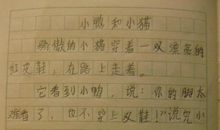 小鸭和小猫
骄傲的小猫穿着一双漂亮的
红皮鞋,在路上走着。
它看到小鸭,说:你的脚太
难看了,也不穿上双鞋!”说完小